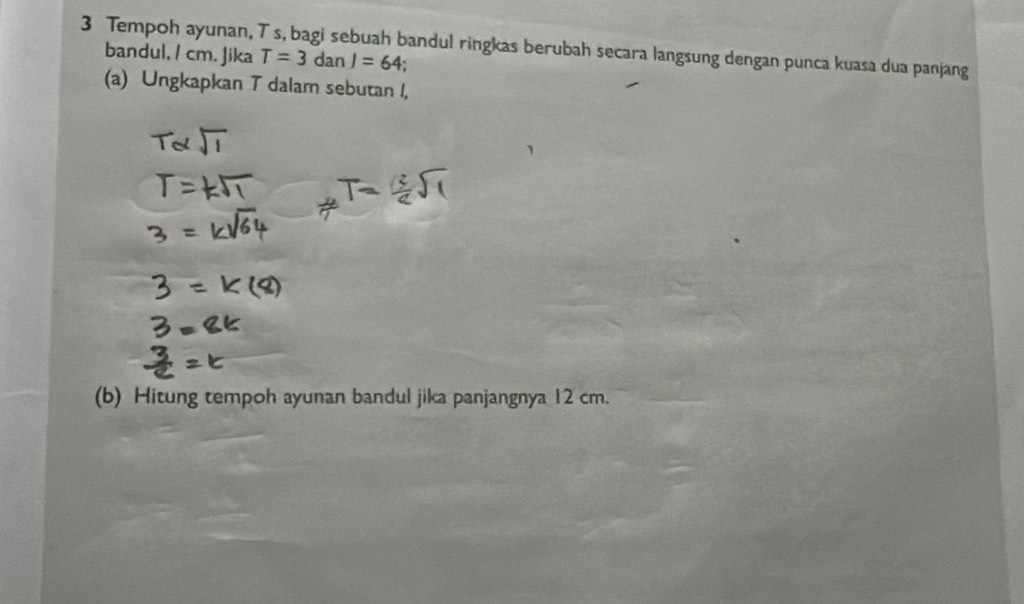 3 Tempoh ayunan, T s, bagi sebuah bandul ringkas berubah secara langsung dengan punca kuasa dua panjang
bandul, l cm. Jika T = 3 dan l = 64;
(a) Ungkapkan T dalam sebutan l,
T∝√l
T=k√l
# T=3/8√l
3 = k√64
3 = k(8)
3=8k
3/8=k
(b) Hitung tempoh ayunan bandul jika panjangnya 12 cm.